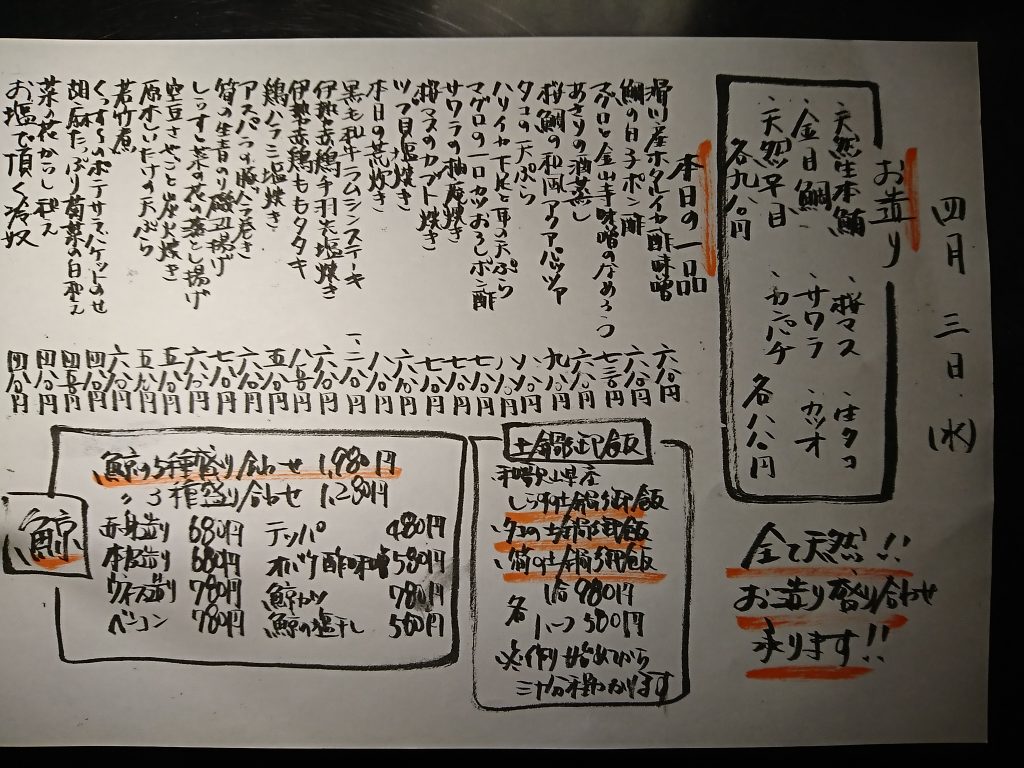 四月三日(水)
お造り
、天然生本鮪
、金目鯛
、天然平目
各九八〇円
、桜マス
、サワラ
、カンパチ
、生タコ
、カツオ
各八八〇円
全て天然!!
お造り盛り合わせ
承ります!!
本日の一品
滑川産ホタルイカ酢味噌 六八〇円
鯛の白子ポン酢 六八〇円
マグロと金山寺味噌のなめろう 七三〇円
あさりの酒蒸し 六八〇円
桜鯛の和風アクアパッツァ
タコの天ぷら
ハリイカ下足と耳の天ぷら
マグロの一口カツおろしポン酢
サワラの柚庵焼き 七八〇円
桜マスのカブト焼き 七八〇円
ツブ貝塩焼き 六八〇円
本日の荒炊き 八八〇円
黒毛和牛ラムシンステーキ
伊勢赤鶏手羽先塩焼き 六八〇円
伊勢赤鶏ももタタキ
鶏ハラミ塩焼き
アスパラの豚バラ巻き 六八〇円
筍の生青のり磯辺揚げ 七八〇円
しらすと菜の花の落とし揚げ
空豆さやごと炭火焼き
原木しいたけの天ぷら
若竹煮 六八〇円
くっす〜のポテサラバケット乗せ
胡麻たっぷり菊菜の白和え
菜の花からし和え 四八〇円
お塩で頂く冷奴 四八〇円
土鍋御飯
和歌山県産
しらす土鍋御飯
タコの土鍋御飯
筍の土鍋御飯
各 1合 980円
ハーフ 500円
※作り始めてから
三十分程かかります
鯨
鯨の5種盛り合わせ 1,980円
〃 3種盛り合わせ 1,280円
赤身造り 680円
本皮造り 680円
ウネス造り 780円
ベーコン 780円
テッパ 480円
オバケ酢味噌 580円
鯨カツ 780円
鯨の塩干し 580円